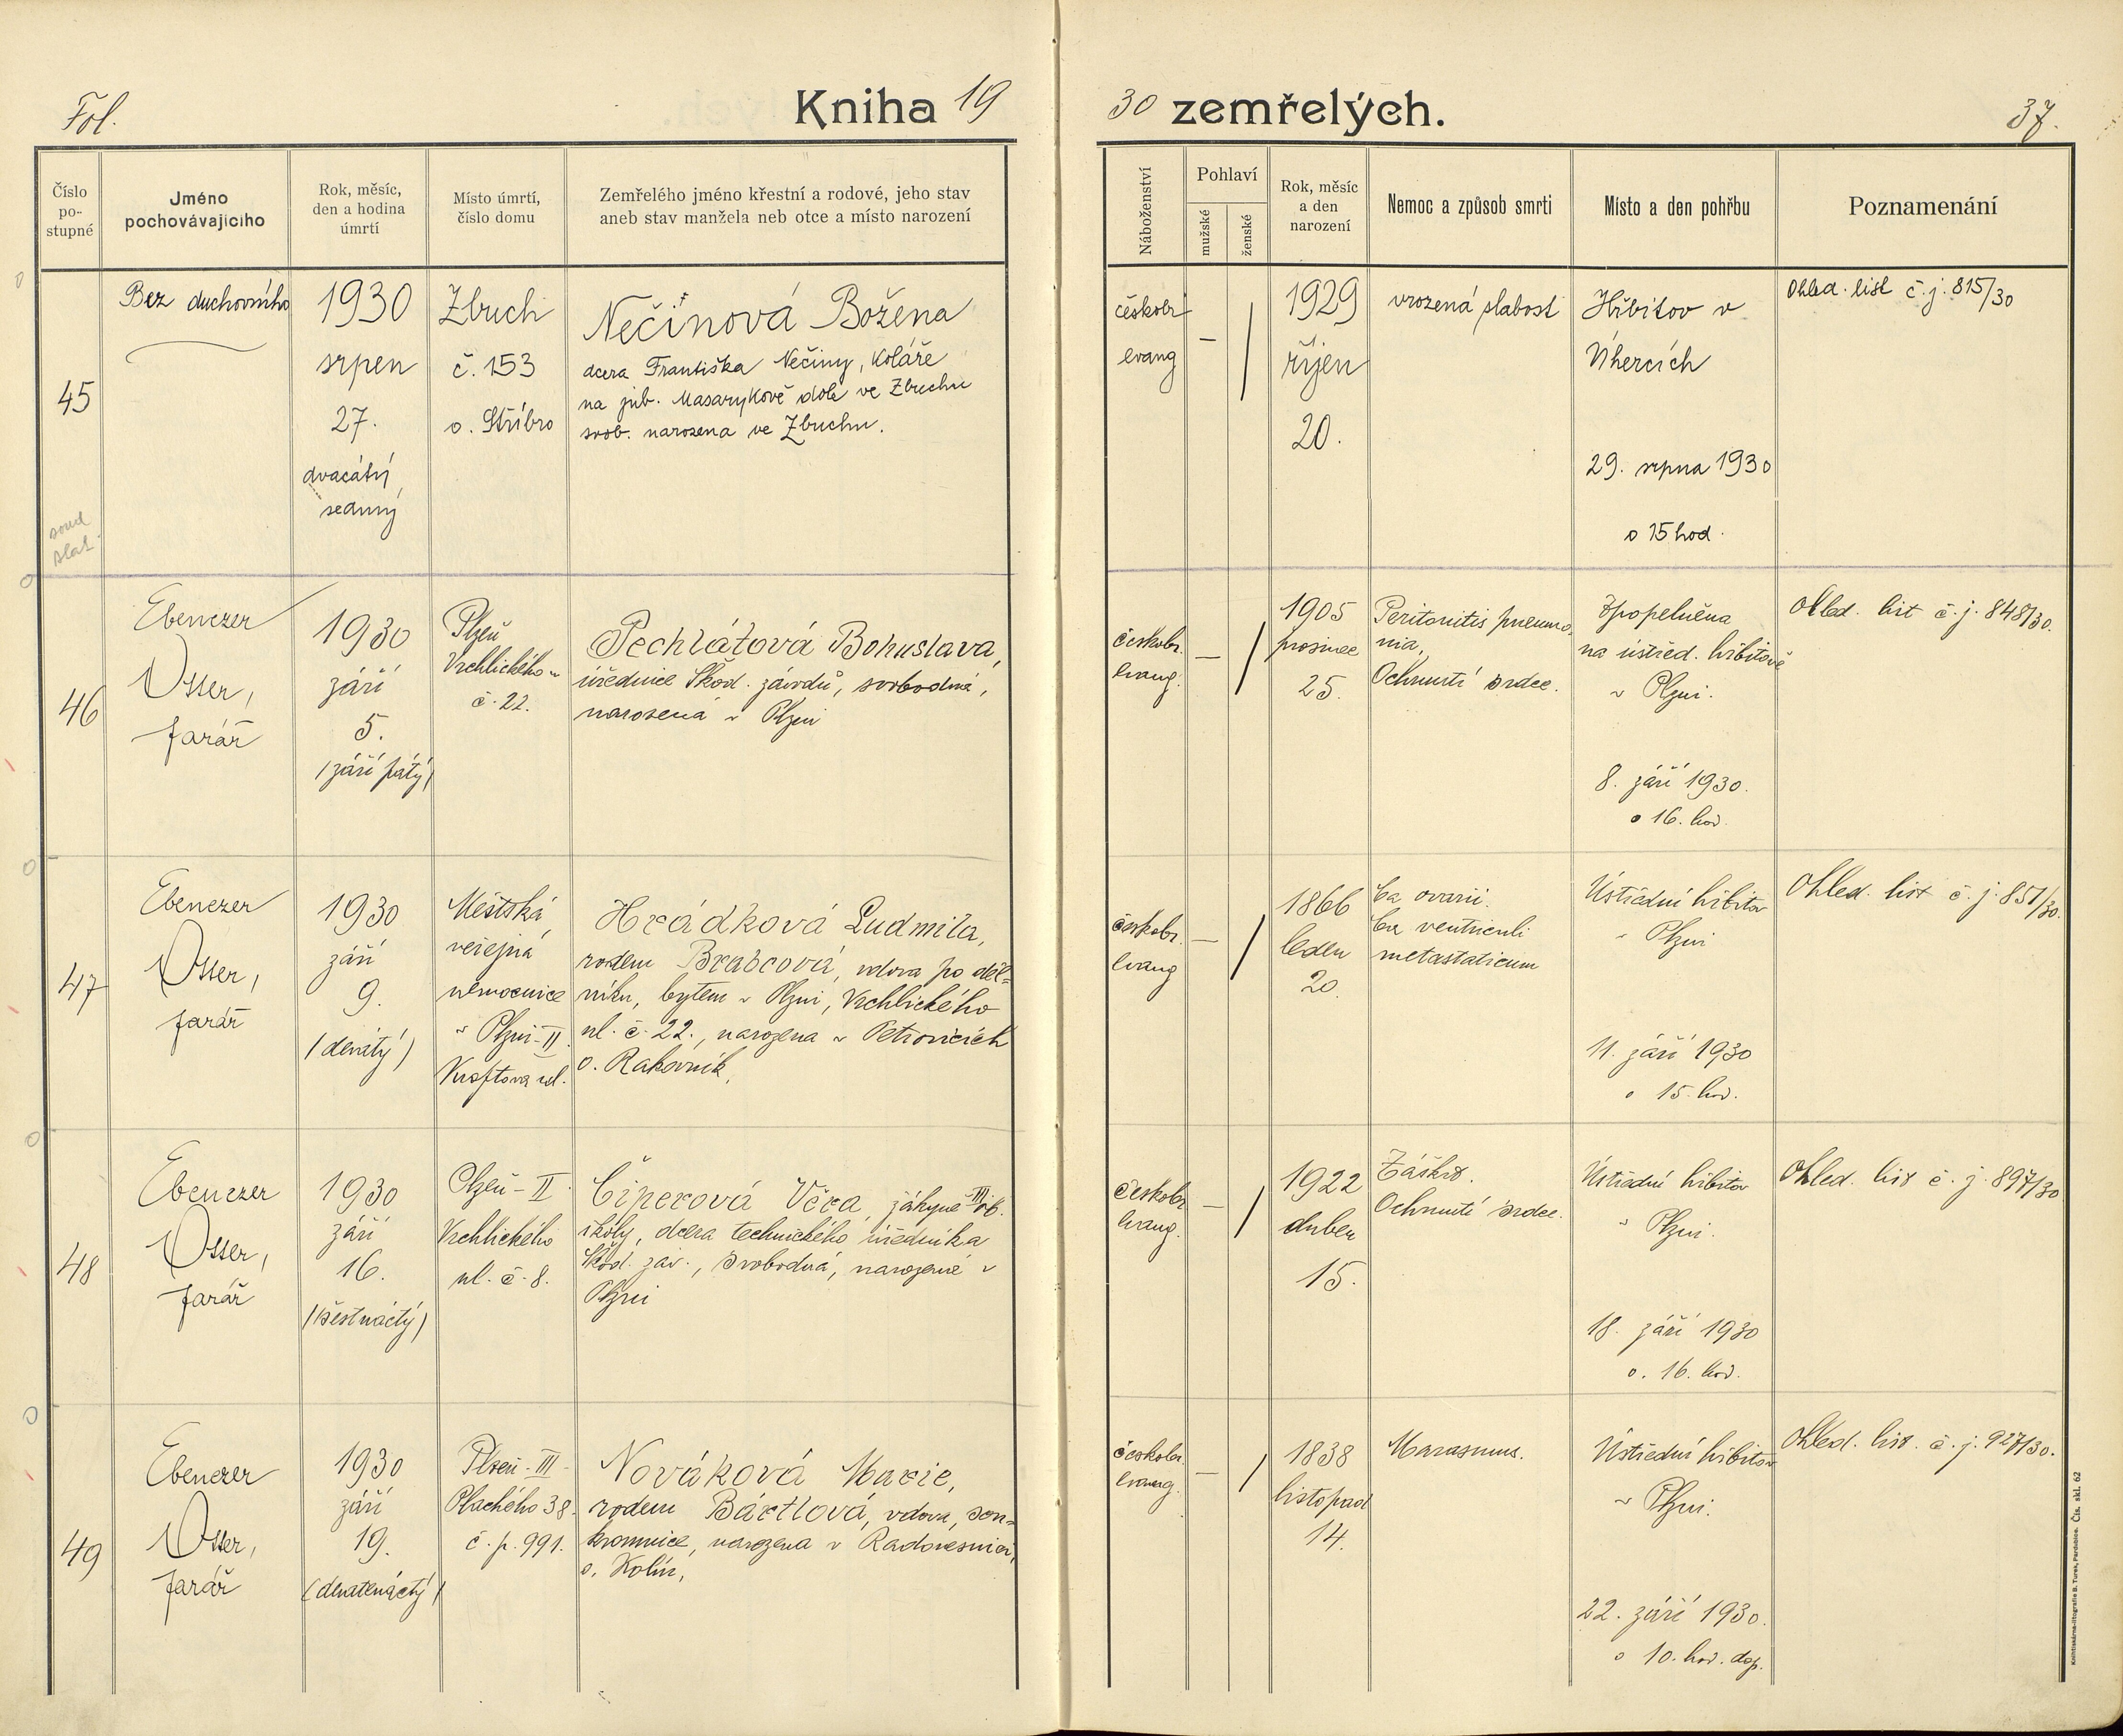 Fol.
Kniha 19
30 zemřelých.
37.
Číslo
po-
stupné
Jméno
pochovávajícího
Rok, měsíc,
den a hodina
úmrtí
Místo úmrtí,
číslo domu
Zemřelého jméno křestní a rodové, jeho stav
aneb stav manžela neb otce a místo narození
Náboženství
Pohlaví
mužské
ženské
Rok, měsíc
a den
narození
Nemoc a způsob smrti
Místo a den pohřbu
Poznamenání
45
Bez duchovního
1930
srpen
27.
dvacátý
sedmý
Zbuch
č. 153
o. Stříbro
Nečinová Božena
dcera Františka Nečiny, koláře
na jub. Masarykově dole ve Zbuchu
svob. narozena ve Zbuchu.
českobr
evang
—
/
1929
říjen
20.
vrozená slabost
Hřbitov v
Úhercích
29. srpna 1930
o 15 hod.
Ohled. list č. j. 815/30
46
Ebenezer
Otter,
farář
1930
září
5.
/září pátý/
Plzeň
Vrchlického
č. 22.
Pechlátová Bohuslava,
úřednice Škod. závodů, svobodná,
narozená v Plzni
českobr.
evang.
—
/
1905
prosinec
25.
Peritonitis pneumo-
nia,
Ochrnutí srdce.
Zpopelněna
na ústřed. hřbitově
v Plzni.
8. září 1930.
o 16. hod.
Ohled. list č. j. 848/30.
47
Ebenezer
Otter,
farář
1930
září
9.
/devátý/
Městská
veřejná
nemocnice
v Plzni-II
Kroftova ul.
Hrádková Ludmila,
rodem Brabcová, vdova po děl-
níku, bytem v Plzni, Vrchlického
ul. č. 22., narozena v Petrovicích
o. Rakovník,
českobr.
evang
—
/
1866
leden
20.
Ca ovarii.
Ca ventriculi
metastaticum
Ústřední hřbitov
v Plzni
11. září 1930
o 15. hod.
Ohled. list č. j. 851/30.
48
Ebenezer
Otter,
farář
1930
září
16.
/šestnáctý/
Plzeň-II
Vrchlického
ul. č. 8.
Čiperová Věra, žákyně III. ob.
školy, dcera technického úředníka
Škod. záv., svobodná, narozené v
Plzni
českobr
evang.
—
/
1922
duben
15.
Záškrt.
Ochrnutí srdce.
Ústřední hřbitov
v Plzni.
18. září 1930
o. 16. hod.
Ohled. list č. j. 897/30
49
Ebenezer
Otter,
farář
1930
září
19.
/devatenáctý/
Plzeň-III
Plachého 38.
č. p. 991.
Nováková Marie,
rodem Bártlová, vdova, sou-
kromnice, narozena v Radovesnici,
o. Kolín,
českobr
evang.
—
/
1838
listopad
14.
Marasmus.
Ústřední hřbitov
v Plzni.
22. září 1930.
o 10. hod. dop.
Ohled. list. č. j. 927/30.